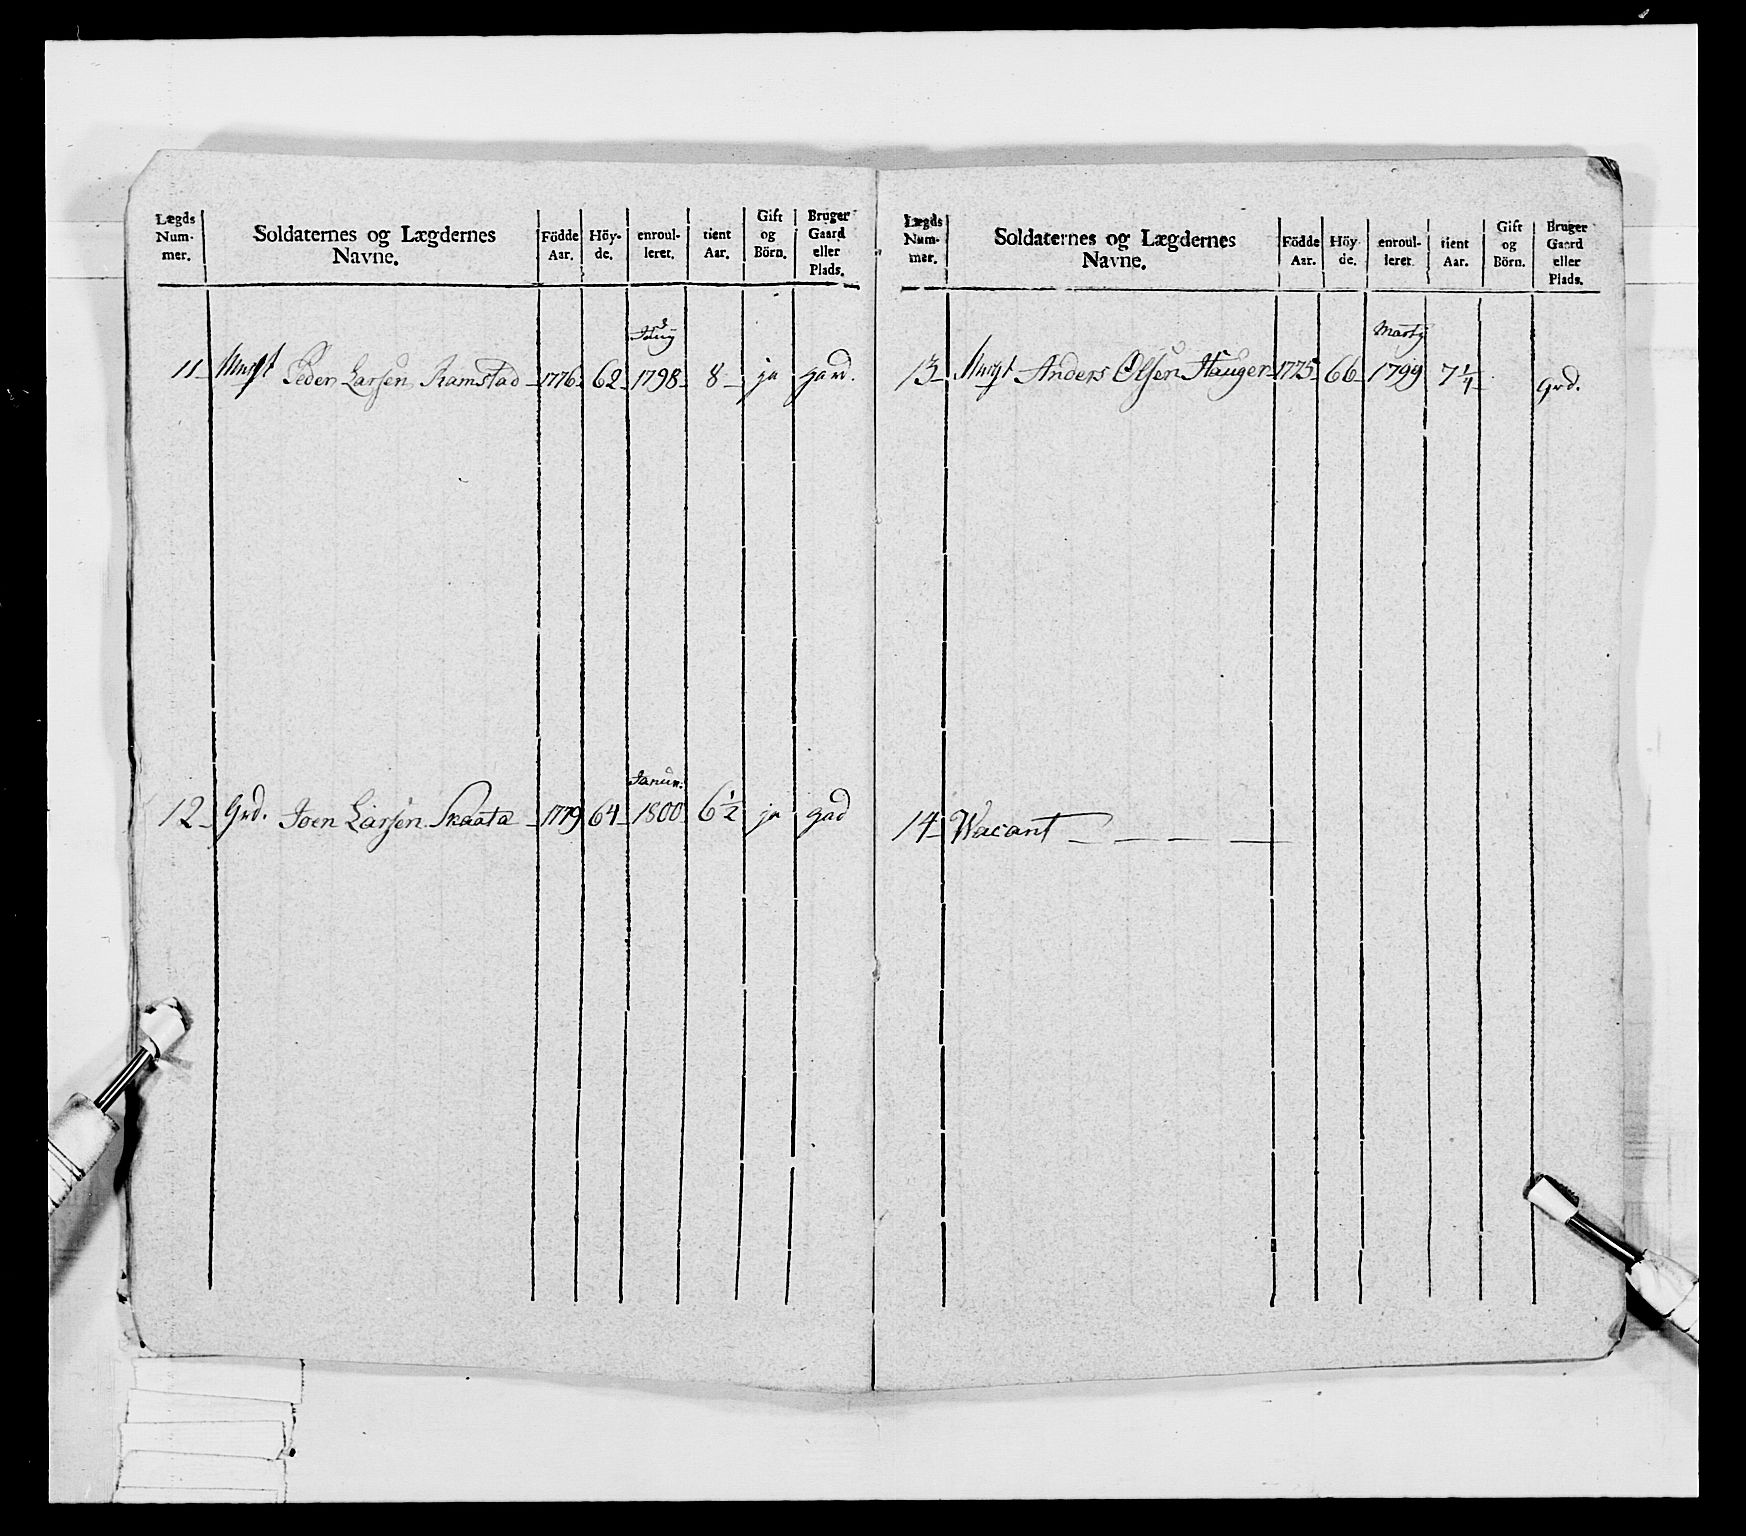 Lægds Num- mer. | Soldaternes og Lægdernes Navne. | Födde Aar. | Höy- de. | enroul- leret. | tient Aar. | Gift og Börn. | Bruger Gaard eller Plads.
11 - Peder Larsen Ramstad - 1776 - 62 - 1798 - 8 - ja gard.
Janur.
12 - Grd. Joen Larsen Skaata - 1779 64 - 1800 6 1/2 ja gad
Lægds Num- mer. | Soldaternes og Lægdernes Navne. | Födde Aar. | Höy de. | enroul- leret | tient Aar. | Gift og Börn. | Bruger Gaard eller Plads.
Martÿ
13 - Anders Olsen Hauger - 1775 - 66 - 1799 7 1/4 - Grd.
14 - Wacant - - - -